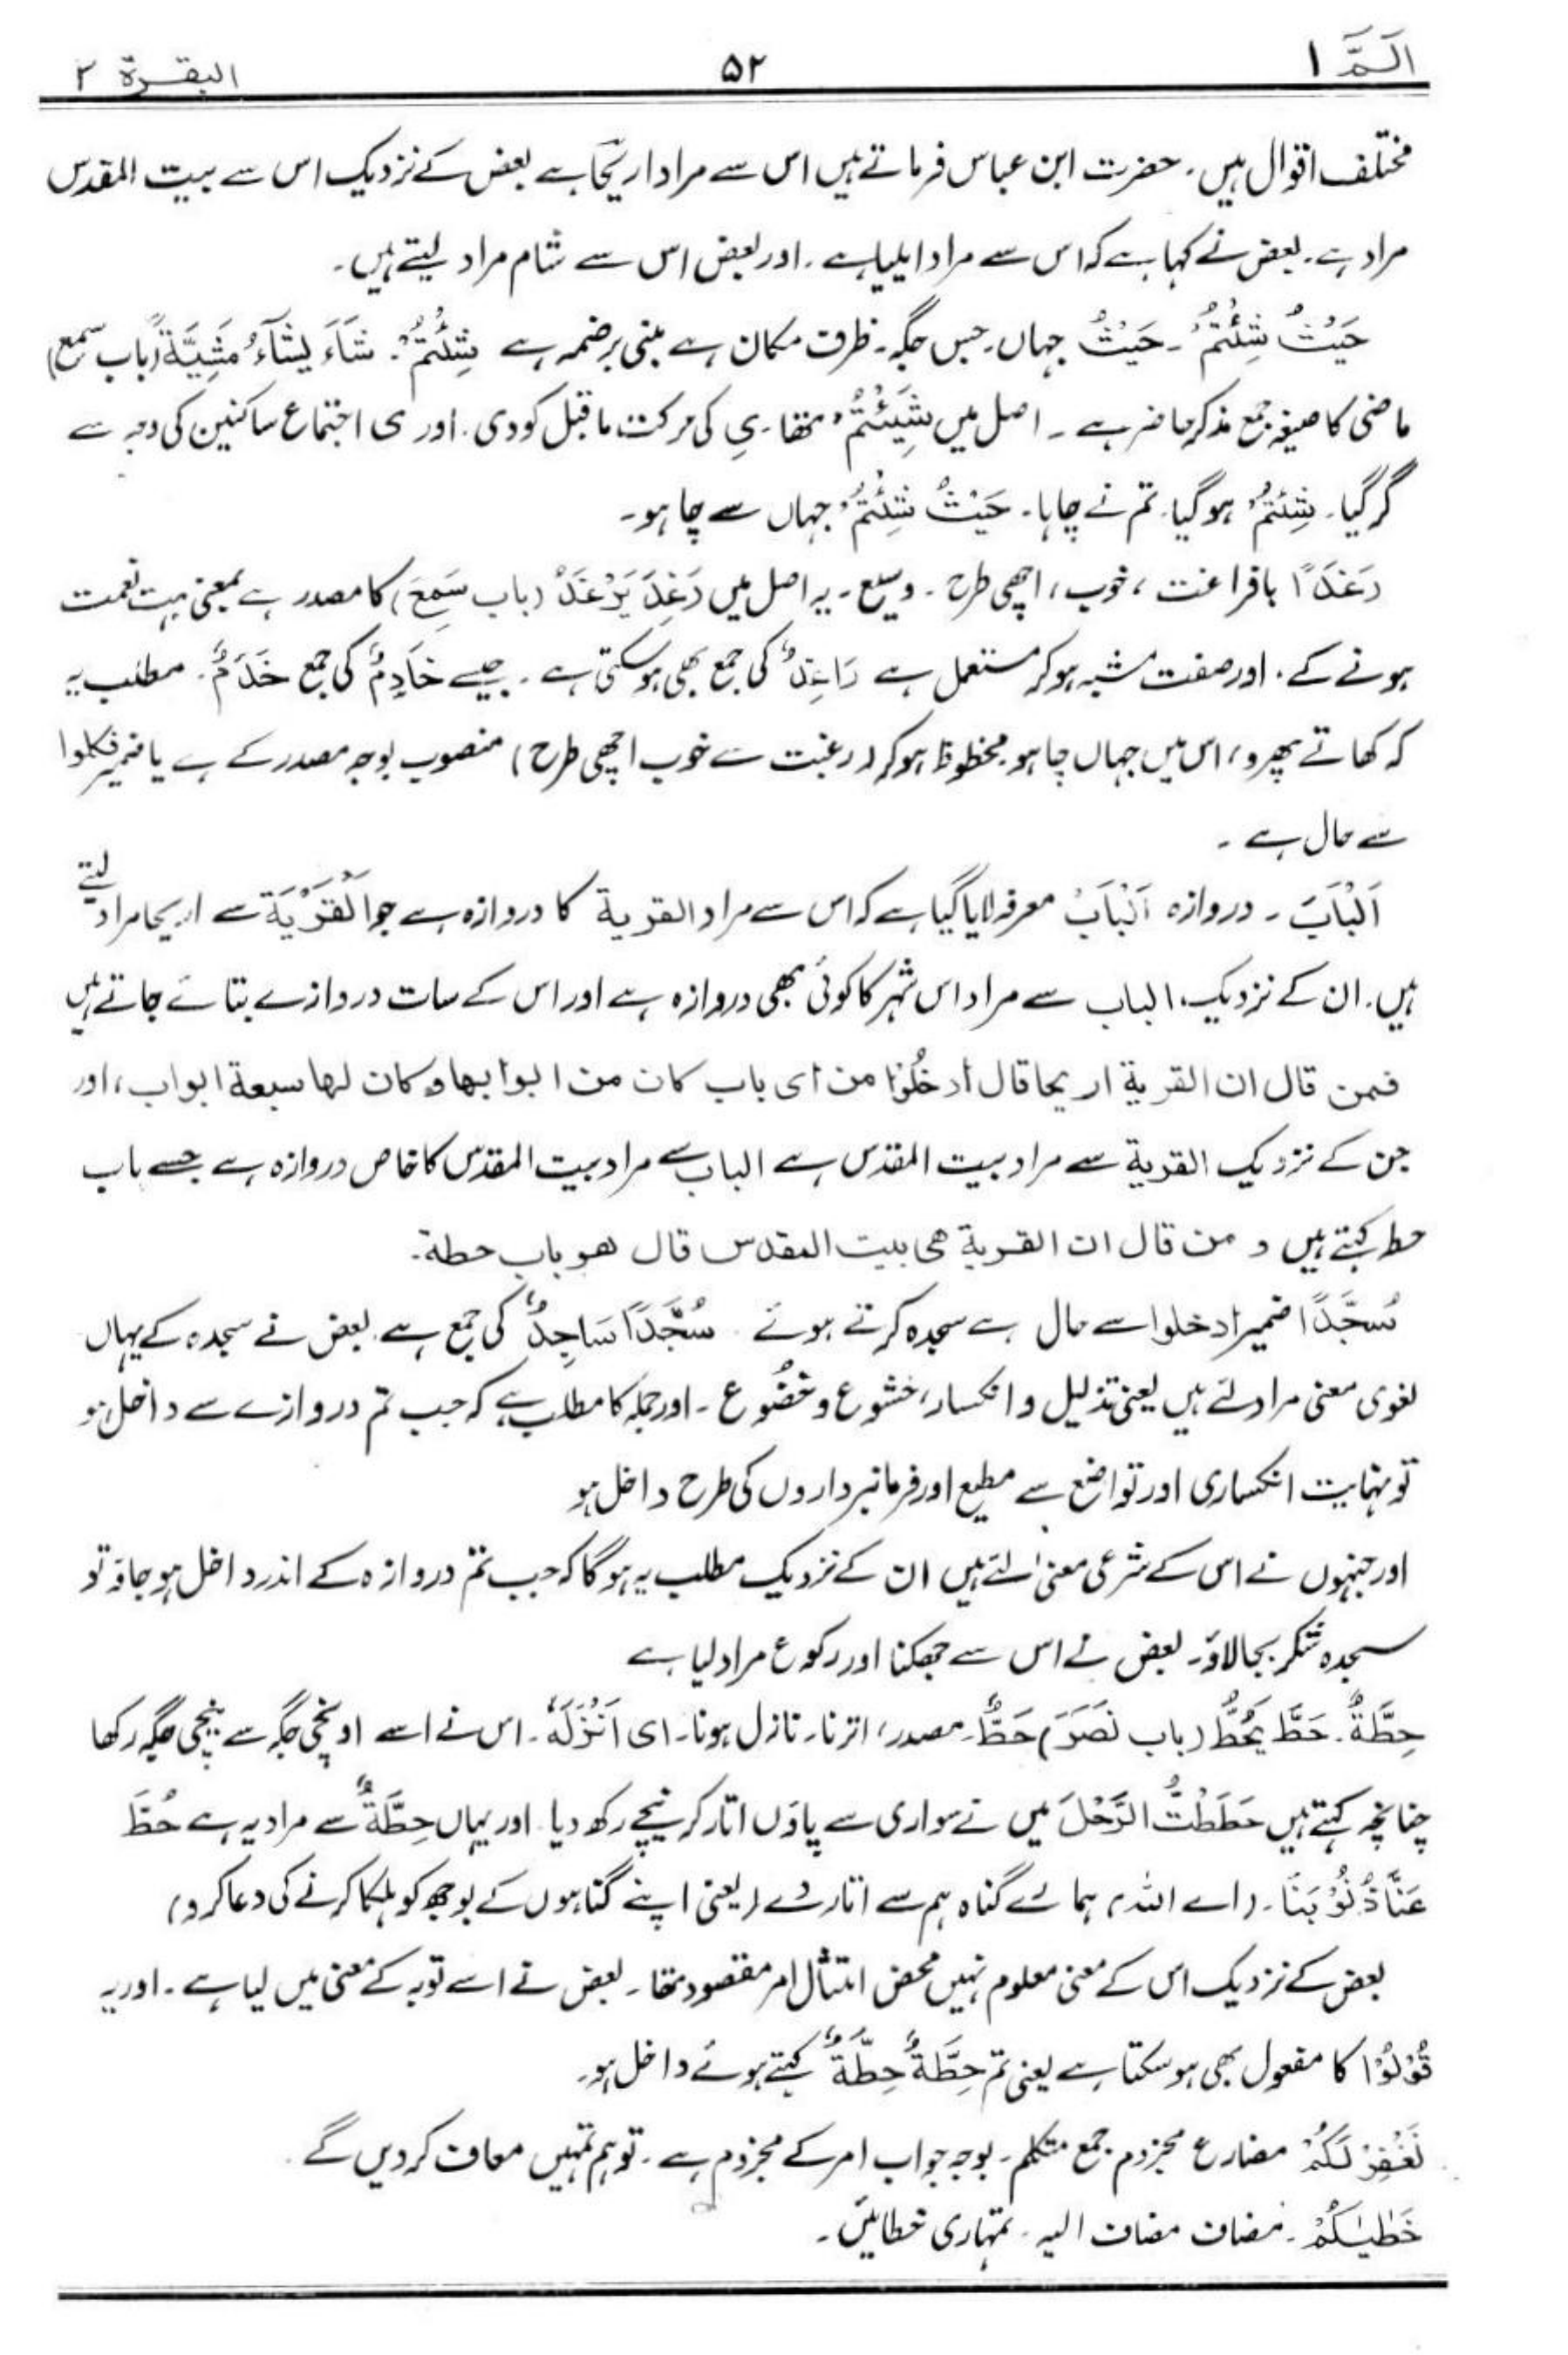 الٓمّٓ ١
۵۲
البقرة ۲
مختلف اقوال ہیں۔ حضرت ابن عباس فرماتے ہیں اس سے مراد اریحا ہے بعض کے نزدیک اس سے بیت المقدس
مراد ہے۔ بعض نے کہا ہے کہ اس سے مراد ایلیا ہے۔ اور بعض اس سے شام مراد لیتے ہیں۔
حَيْثُ شِئْتُمْ۔ حَيْثُ جہاں۔ جس جگہ۔ ظرف مکان ہے مبنی بر ضمہ ہے شِئْتُمْ۔ شَآءَ يَشَآءُ مَشِيَّةً (باب سمع)
ماضی کا صیغہ جمع مذکر حاضر ہے۔ اصل میں شَيِئْتُمْ تھا۔ یِ کی حرکت ماقبل کو دی۔ اور ی اجتماع ساکنین کی وجہ سے
گر گیا۔ شِئْتُمْ ہو گیا۔ تم نے چاہا۔ حَيْثُ شِئْتُمْ جہاں سے چاہو۔
رَغَدًا بافراغت، خوب، اچھی طرح۔ وسیع۔ یہ اصل میں رَغِدَ يَرْغَدُ (باب سَمِعَ) کا مصدر ہے بمعنی بہت نعمت
ہونے کے۔ اور صفت مشبہ ہو کر مستعمل ہے رَاغِدٌ کی جمع بھی ہو سکتی ہے۔ جیسے خَادِمٌ کی جمع خَدَمٌ۔ مطلب یہ
کہ کھاتے پھرو، اس میں جہاں چاہو محظوظ ہو کر (رغبت سے خوب اچھی طرح) منصوب بوجہ مصدر کے ہے یا ضمیر فکلوا
سے حال ہے۔
اَلْبَابَ۔ دروازہ اَلْبَابُ معرفہ لایا گیا ہے کہ اس سے مراد القرية کا دروازہ ہے جو اَلْقَرْيَة سے اریحا مراد لیتے
ہیں۔ ان کے نزدیک، الباب سے مراد اس شہر کا کوئی بھی دروازہ ہے اور اس کے سات دروازے بتائے جاتے ہیں
فمن قال ان القرية اريحا قال ادخُلُوا من ای باب كان من ابوابها و كان لها سبعة ابواب، اور
جن کے نزدیک القرية سے مراد بیت المقدس ہے الباب سے مراد بیت المقدس کا خاص دروازہ ہے جسے باب
حطہ کہتے ہیں و من قال ان القرية هی بيت المقدس قال هو باب حطة۔
سُجَّدًا ضمیر ادخلوا سے حال ہے سجدہ کرتے ہوئے۔ سُجَّدًا سَاجِدٌ کی جمع ہے۔ بعض نے سجدہ کے یہاں
لغوی معنی مراد لئے ہیں یعنی تذلیل و انکسار، خشوع و خضُوع۔ اور جملہ کا مطلب ہے کہ جب تم دروازے سے داخل ہو
تو نہایت انکساری اور تواضع سے مطیع اور فرمانبرداروں کی طرح داخل ہو
اور جنہوں نے اس کے شرعی معنیٰ لئے ہیں ان کے نزدیک مطلب یہ ہو گا کہ جب تم دروازہ کے اندر داخل ہو جاؤ تو
سجدہ شکر بجا لاؤ۔ بعض نے اس سے جھکنا اور رکوع مراد لیا ہے
حِطَّةٌ۔ حَطَّ يَحُطُّ (باب نَصَرَ) حَطٌّ۔ مصدر، اترنا۔ نازل ہونا۔ ای اَنْزَلَهٗ۔ اس نے اسے اونچی جگہ سے نیچی جگہ رکھا
چنانچہ کہتے ہیں حَطَطْتُّ الرَّحْلَ میں نے سواری سے پاؤں اتار کر نیچے رکھ دیا۔ اور یہاں حِطَّةٌ سے مراد یہ ہے حُطَّ
عَنَّا ذُنُوْبَنَا۔ (اے اللہ، ہمارے گناہ ہم سے اتار دے (یعنی اپنے گناہوں کے بوجھ کو ہلکا کرنے کی دعا کرو)
بعض کے نزدیک اس کے معنی معلوم نہیں محض امتثال امر مقصود تھا۔ بعض نے اسے توبہ کے معنی میں لیا ہے۔ اور یہ
قُوْلُوْا کا مفعول بھی ہو سکتا ہے یعنی تم حِطَّةٌ حِطَّةٌ کہتے ہوئے داخل ہو۔
نَغْفِرْ لَكُمْ مضارع مجزوم جمع متکلم۔ بوجہ جواب امر کے مجزوم ہے۔ تو ہم تمہیں معاف کر دیں گے۔
خَطٰيٰكُمْ۔ مضاف مضاف الیہ۔ تمہاری خطائیں۔